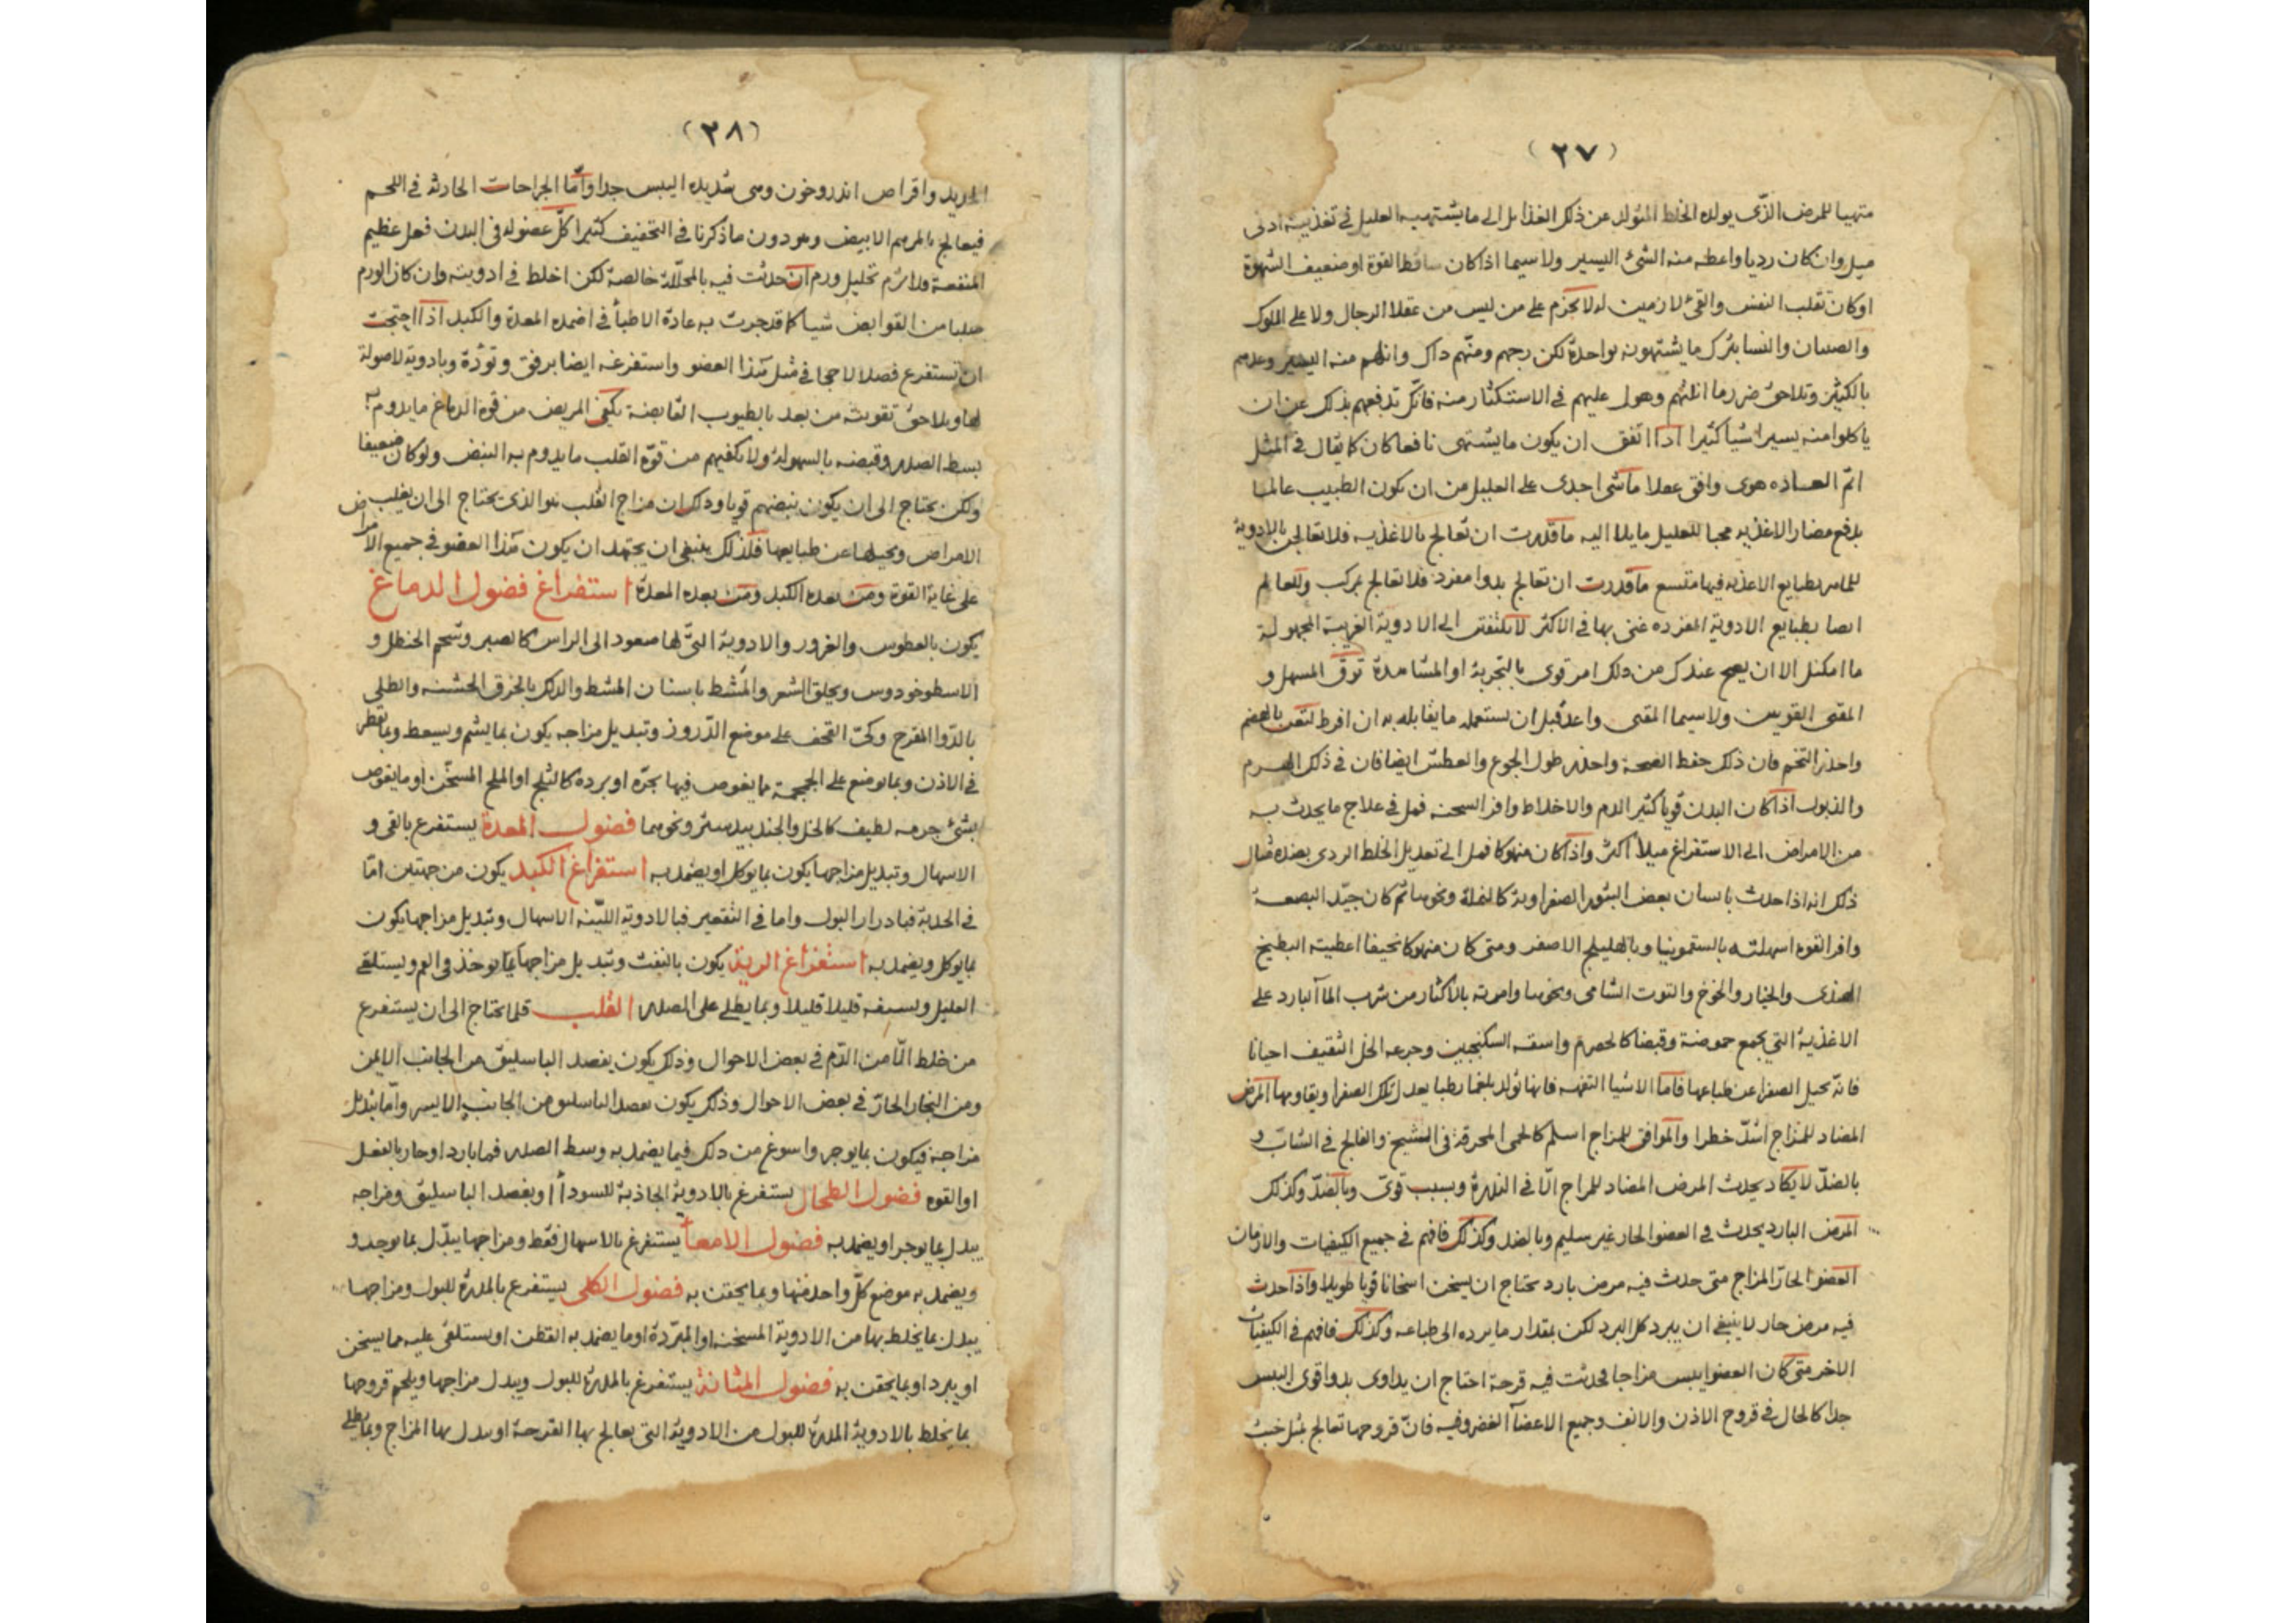 (٢٧)
متهيا للمرض الذى يولده الخلط المتولد عن ذلك الغذا بل الى ما يشتهيه العليل فى تغذيته ادنى
ميل وان كان رديا واعطه منه الشئ اليسير ولاسيما اذا كان ساقط القوة او ضعيف الشهوة
او كان تقلب النفس والقئ لازمين له لا تحزم على من ليس من عقلا الرجال ولا على الملوك
والصبيان والنسا بترك ما يشتهونه بواحدة لكن رجهم ومنّهم ذاك وانلهم منه اليسير وعدهم
بالكثير وتلاحق ضرر ما انلتهم وهول عليهم فى الاستكثار منه فانك تدفعهم بذلك عن ان
ياكلوا منه يسيرا شيأ كثيرا اذا اتفق ان يكون ما يشتهى نافعا كان كا يقال فى المثل
هوى وافق عقلا ما شى اجدى على العليل من ان يكون الطبيب عالما
بدفع مضار الاغذيه محبا للعليل مايلا اليه ما قدرت ان تعالج بالاغذيه فلا تعالجن بالادوية
بطبايع الاغذيه فيها متسع ما قدرت ان تعالج بدوا مفرد فلا تعالج بمركب وللعالم
ايضا بطبايع الادوية المفرده غنى بها فى الاكثر لا تلتفتن الى الادوية الغريبة المجهولة
ما امكنك الا ان يصح عندك من ذلك امر قوى بالتجربة او المشاهدة توق المسهل و
المقى القويين ولاسيما المقى واعد قبل ان تستعمله ما يقابله به ان افرط لتعن بالهضم
واحذر التخم فان ذلك حفظ الصحة واحذر طول الجوع والعطش ايضا فان فى ذلك الهرم
والذبول اذا كان البدن قويا كثير الدم والاخلاط وافر السحنه فمل فى علاج ما يحدث به
من الامراض الى الاستفراغ ميلا اكثر واذا كان منهوكا فمل الى تعديل الخلط الردى بضده مثال
ذلك انه اذا حدث بانسان بعض البثور الصفراوية كالنملة ونحوها ثم كان جيّد البضعة
وافر القوه اسهلته بالسقمونيا وبالهليلج الاصفر ومتى كان منهوكا نحيفا اعطيته البطيخ
الهندى والخيار والخوخ والتوت الشامى ونحوها وامرته بالاكثار من شرب الما البارد على
الاغذية التى تجمع حموضة وقبضا كالحصرم واسقه السكنجبين وجرعه الخل الثقيف احيانا
فانه يحيل الصفرا عن طباعها فاما الاشيا التفهه فانها تولد بلغما رطبا يعدل تلك الصفرا ويقاومها المرض
المضاد للمزاج اشدّ خطرا والموافق للمزاج اسلم كالحمى المحرقة فى الشيخ والفالج فى الشاب و
بالضدّ لا يكاد يحدث المرض المضاد للمزاج الّا فى الندرة وبسبب قوىّ وبالضدّ وكذلك
المرض البارد يحدث فى العضو الحار غير سليم وبالضد وكذلك فافهم فى جميع الكيفيات والازمان
العضو الحارّ المزاج متى حدث فيه مرض بارد يحتاج ان يسخن اسخانا قويا طويلا واذا حدث
فيه مرض حار لا ينبغى ان يبرد كل البرد لكن بمقدار ما يرده الى طباعه وكذلك فافهم فى الكيفيات
الاخر متى كان العضو ايبس مزاجا فحدثت فيه قرحة احتاج ان يداوى بدوا قوى اليبس
جدا كالحال فى قروح الاذن والانف وجميع الاعضآ الغضروفيه فانّ قروحها تعالج بمثل خبث
(٢٨)
الحديد واقراص اندروخون وهى شديده اليبس جدا وامّا الجراحات الحادثه فى اللحم
فيعالج بالمرهم الابيض وهو دون ما ذكرنا فى التجفيف كثيرا كلّ عضو له فى البدن فعل عظيم
المنفعة فلا ترم تحليل ورم ان حدثت فيه بالمحلّلة خالصة لكن اخلط فى ادويته وان كان الورم
صلبا من القوابض شيا كا قد جرت به عادة الاطبأ فى اضمده المعدة والكبد اذا احتجت
ان تستفرغ فضلا لاحجا فى مثل هذا العضو واستفرغه ايضا برفق وتؤدة وبادوية لاصولة
لها ويلاحق تقويته من بعد بالطيوب القابضة يكفى المريض من قوة الدماغ ما يدوم به
بسط الصدر وقبضه بالسهولة ولا يكفيهم من قوّة القلب ما يدوم به النبض ولو كان ضعيفا
ولكن يحتاج الى ان يكون نبضهم قويا وذلك ان مزاج القلب هو الذى يحتاج الى ان يغلب
الامراض ويحيلها عن طبايعها فلذلك ينبغى ان يجتهد ان يكون هذا العضو فى جميع الامراض
على غاية القوة ومن بعده الكبد ومن بعده المعدة استفراغ فضول الدماغ
يكون بالعطوس والغرور والادوية التى لها صعود الى الراس كالصبر وشحم الحنظل و
الاسطوخودوس وبحلق الشعر والمشط باسنان المشط والدلك بالخرق الخشنه والطلى
بالدّوا المقرح وكىّ القحف على موضع الدّروز وتبديل مزاجه يكون بما يشم ويسعط وبما تقطر
فى الاذن وبما توضع على الجمجمة مما يغوص فيها بحرّه او برده كالثلج او الملح المسخّن او ما يغوص
بشئ جرمه لطيف كالخل والجندبيدستر ونحوهما فضول المعدة يستفرغ بالقى و
الاسهال وتبديل مزاجها يكون بما يوكل او يضمد به استفراغ الكبد يكون من جهتين امّا
فى الحدبة فبادرار البول واما فى التقعير فبالادوية الليّنه الاسهال وتبديل مزاجها يكون
بما يوكل ويضمد به استفراغ الرية يكون بالنفث وتبديل مزاجها بما يوخذ فى الفم ويستلقى
العليل ويسيغه قليلا قليلا وبما يطلى على الصدر القلب قلما يحتاج الى ان يستفرغ
من خلط الّا من الدّم فى بعض الاحوال وذلك يكون بفصد الباسليق من الجانب الايمن
ومن البخار الحارّ فى بعض الاحوال وذلك يكون بفصد الباسليق من الجانب الايسر وامّا تبديل
مزاجه فيكون بما يوجر واسوغ من ذلك فيما يضمد به وسط الصدر مما بارد او حار بالفعل
او القوه فضول الطحال يستفرغ بالادوية الجاذبة للسودأ او بفصد الباسليق ومزاجه
يبدل بما يوجر او يضمد به فضول الامعأ يستفرغ بالاسهال فقط ومزاجها يبدّل بما يوجد و
ويضمد به موضع كلّ واحد منها وبما يحقن به فضول الكلى يستفرغ بالمدرة للبول ومزاجها
يبدل بما يخلط بها من الادوية المسخنه او المبرّدة او ما يضمد به القطن او يستلقى عليه مما يسخن
او يبرد او بما يحقن به فضول المثانة يستفرغ بالمدرة للبول ويبدل مزاجها ويلحم قروحها
بما يخلط بالادوية المدرة للبول من الادوية التى يعالج بها القرحة او يبدل بها المزاج وبما يطلى